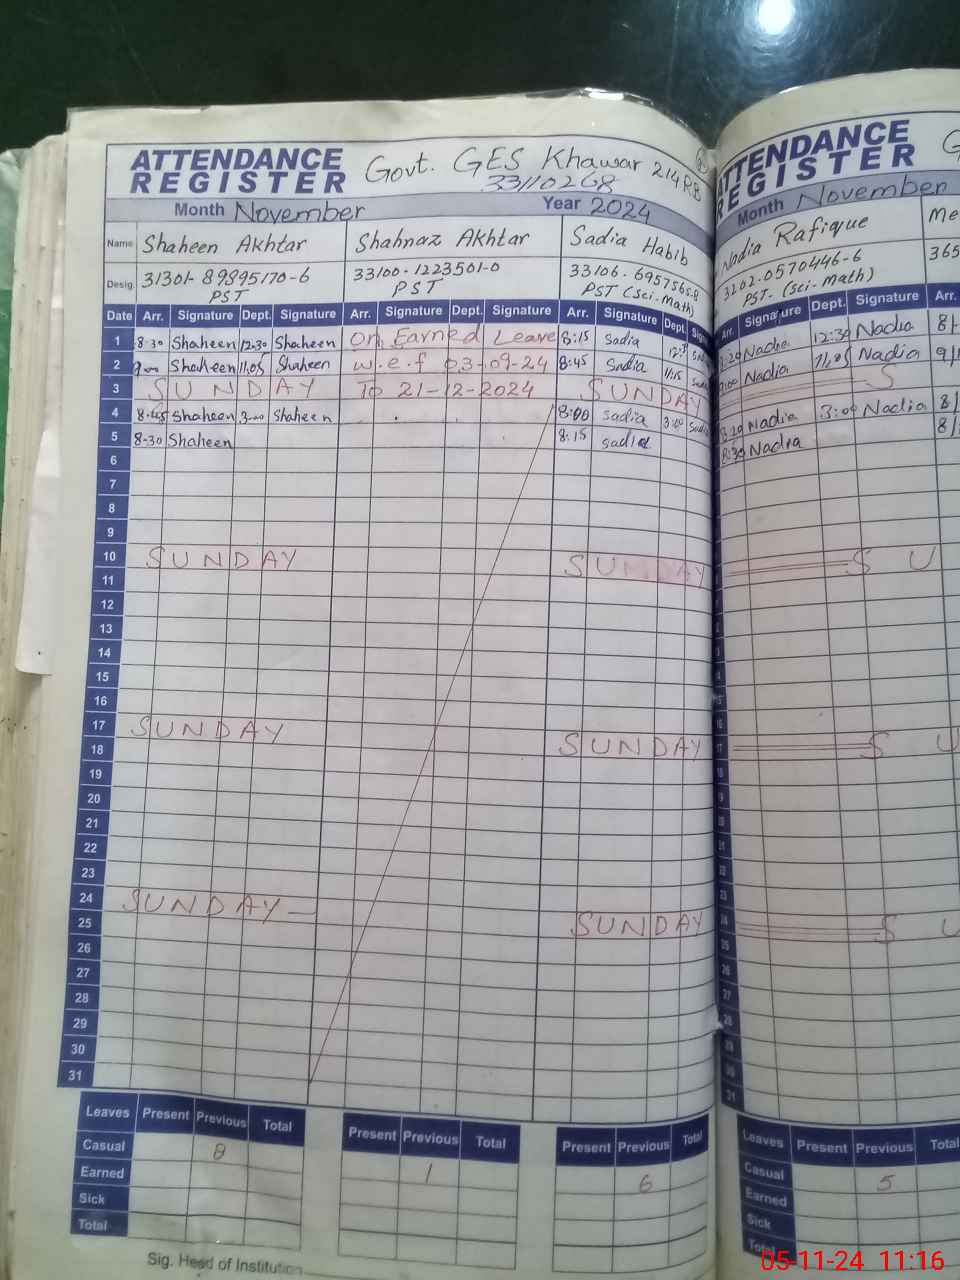 ATTENDANCE REGISTER Govt. GES Khawar 214RB
33110268
Month November Year 2024
Name Shaheen Akhtar Shahnaz Akhtar Sadia Habib
Desig. 31301-89895170-6 33100-1223501-0 33106-6957565-8
PST PST PST (Sci-math)
Date Arr. Signature Dept. Signature Arr. Signature Dept. Signature Arr. Signature Dept.
1 8-30 Shaheen 12-30 Shaheen On Earned Leave 8:15 Sadia
2 9-00 Shaheen 11:05 Shaheen w.e.f 03-09-24 8:45 Sadia 11:15
3 SUNDAY To 21-12-2024 SUNDAY
4 8:45 Shaheen 3-00 Shaheen 8:00 sadia 3:00
5 8-30 Shaheen 8:15 sadia
6
7
8
9
10 SUNDAY SUNDAY
11
12
13
14
15
16
17 SUNDAY SUNDAY
18
19
20
21
22
23
24 SUNDAY SUNDAY
25
26
27
28
29
30
31
Leaves Present Previous Total Present Previous Total Present Previous Total
Casual 8 1 6
Earned
Sick
Total
Sig. Head of Institution
ATTENDANCE REGISTER G
Month November
Nadia Rafique Me
3202-0570446-6 365
PST- (Sci-math)
Arr. Signature Dept. Signature Arr.
8:20 Nadia 12:30 Nadia 8/
9:00 Nadia 11:05 Nadia 9/
S
8:20 Nadia 3:00 Nadia 8/
8:30 Nadia 8/
S U
17 S U
24 S U
Leaves Present Previous Total
Casual 5
Earned
Sick
Total
05-11-24 11:16